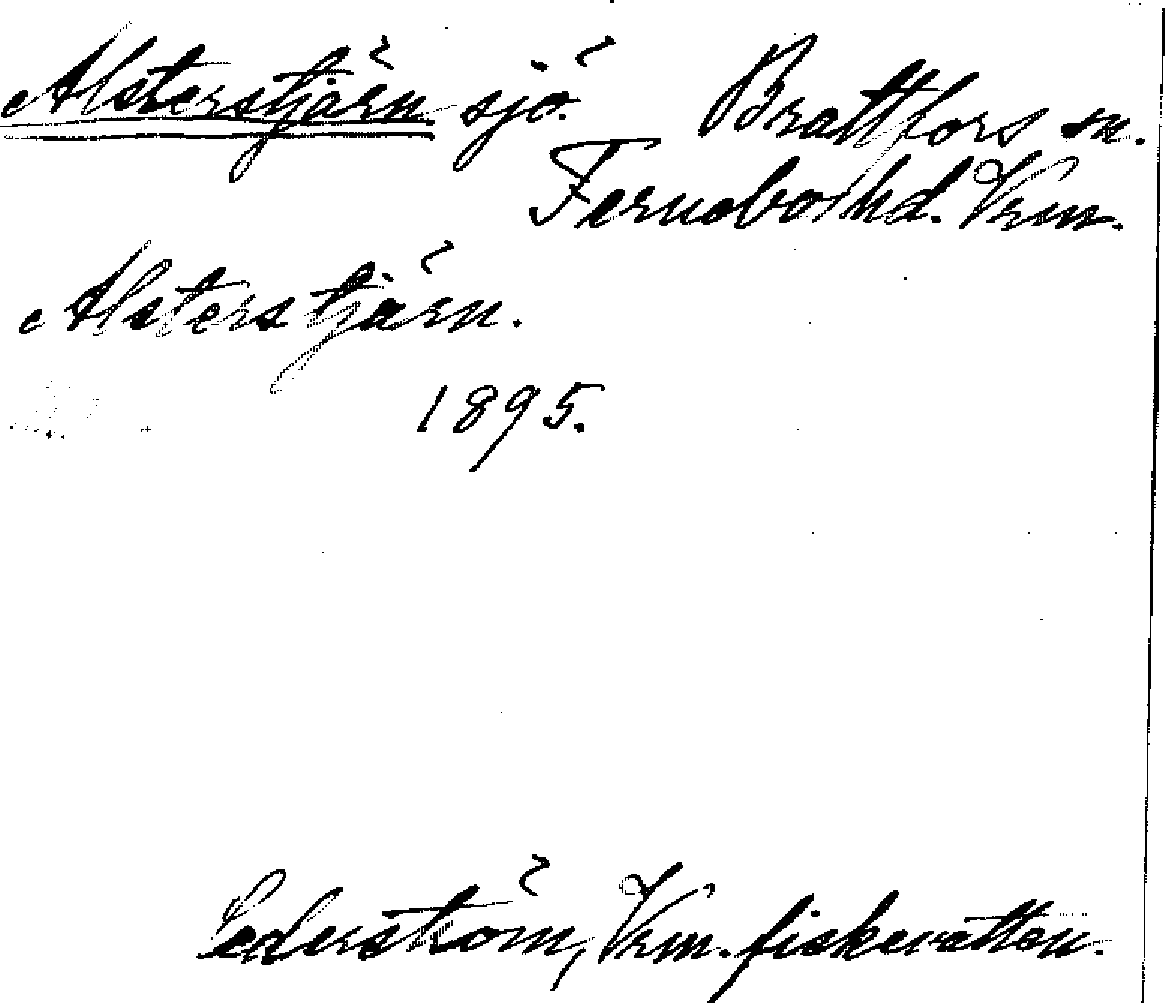 Alsterstjärn sjö. Brattfors sn.
Fernebo hd. Vrm.
Alsterstjärn.
1895.
Cederström, Vrm. fiskevatten.